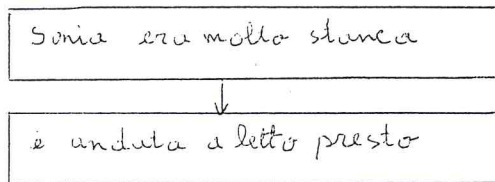 Sonia era molto stanca
è andata a letto presto